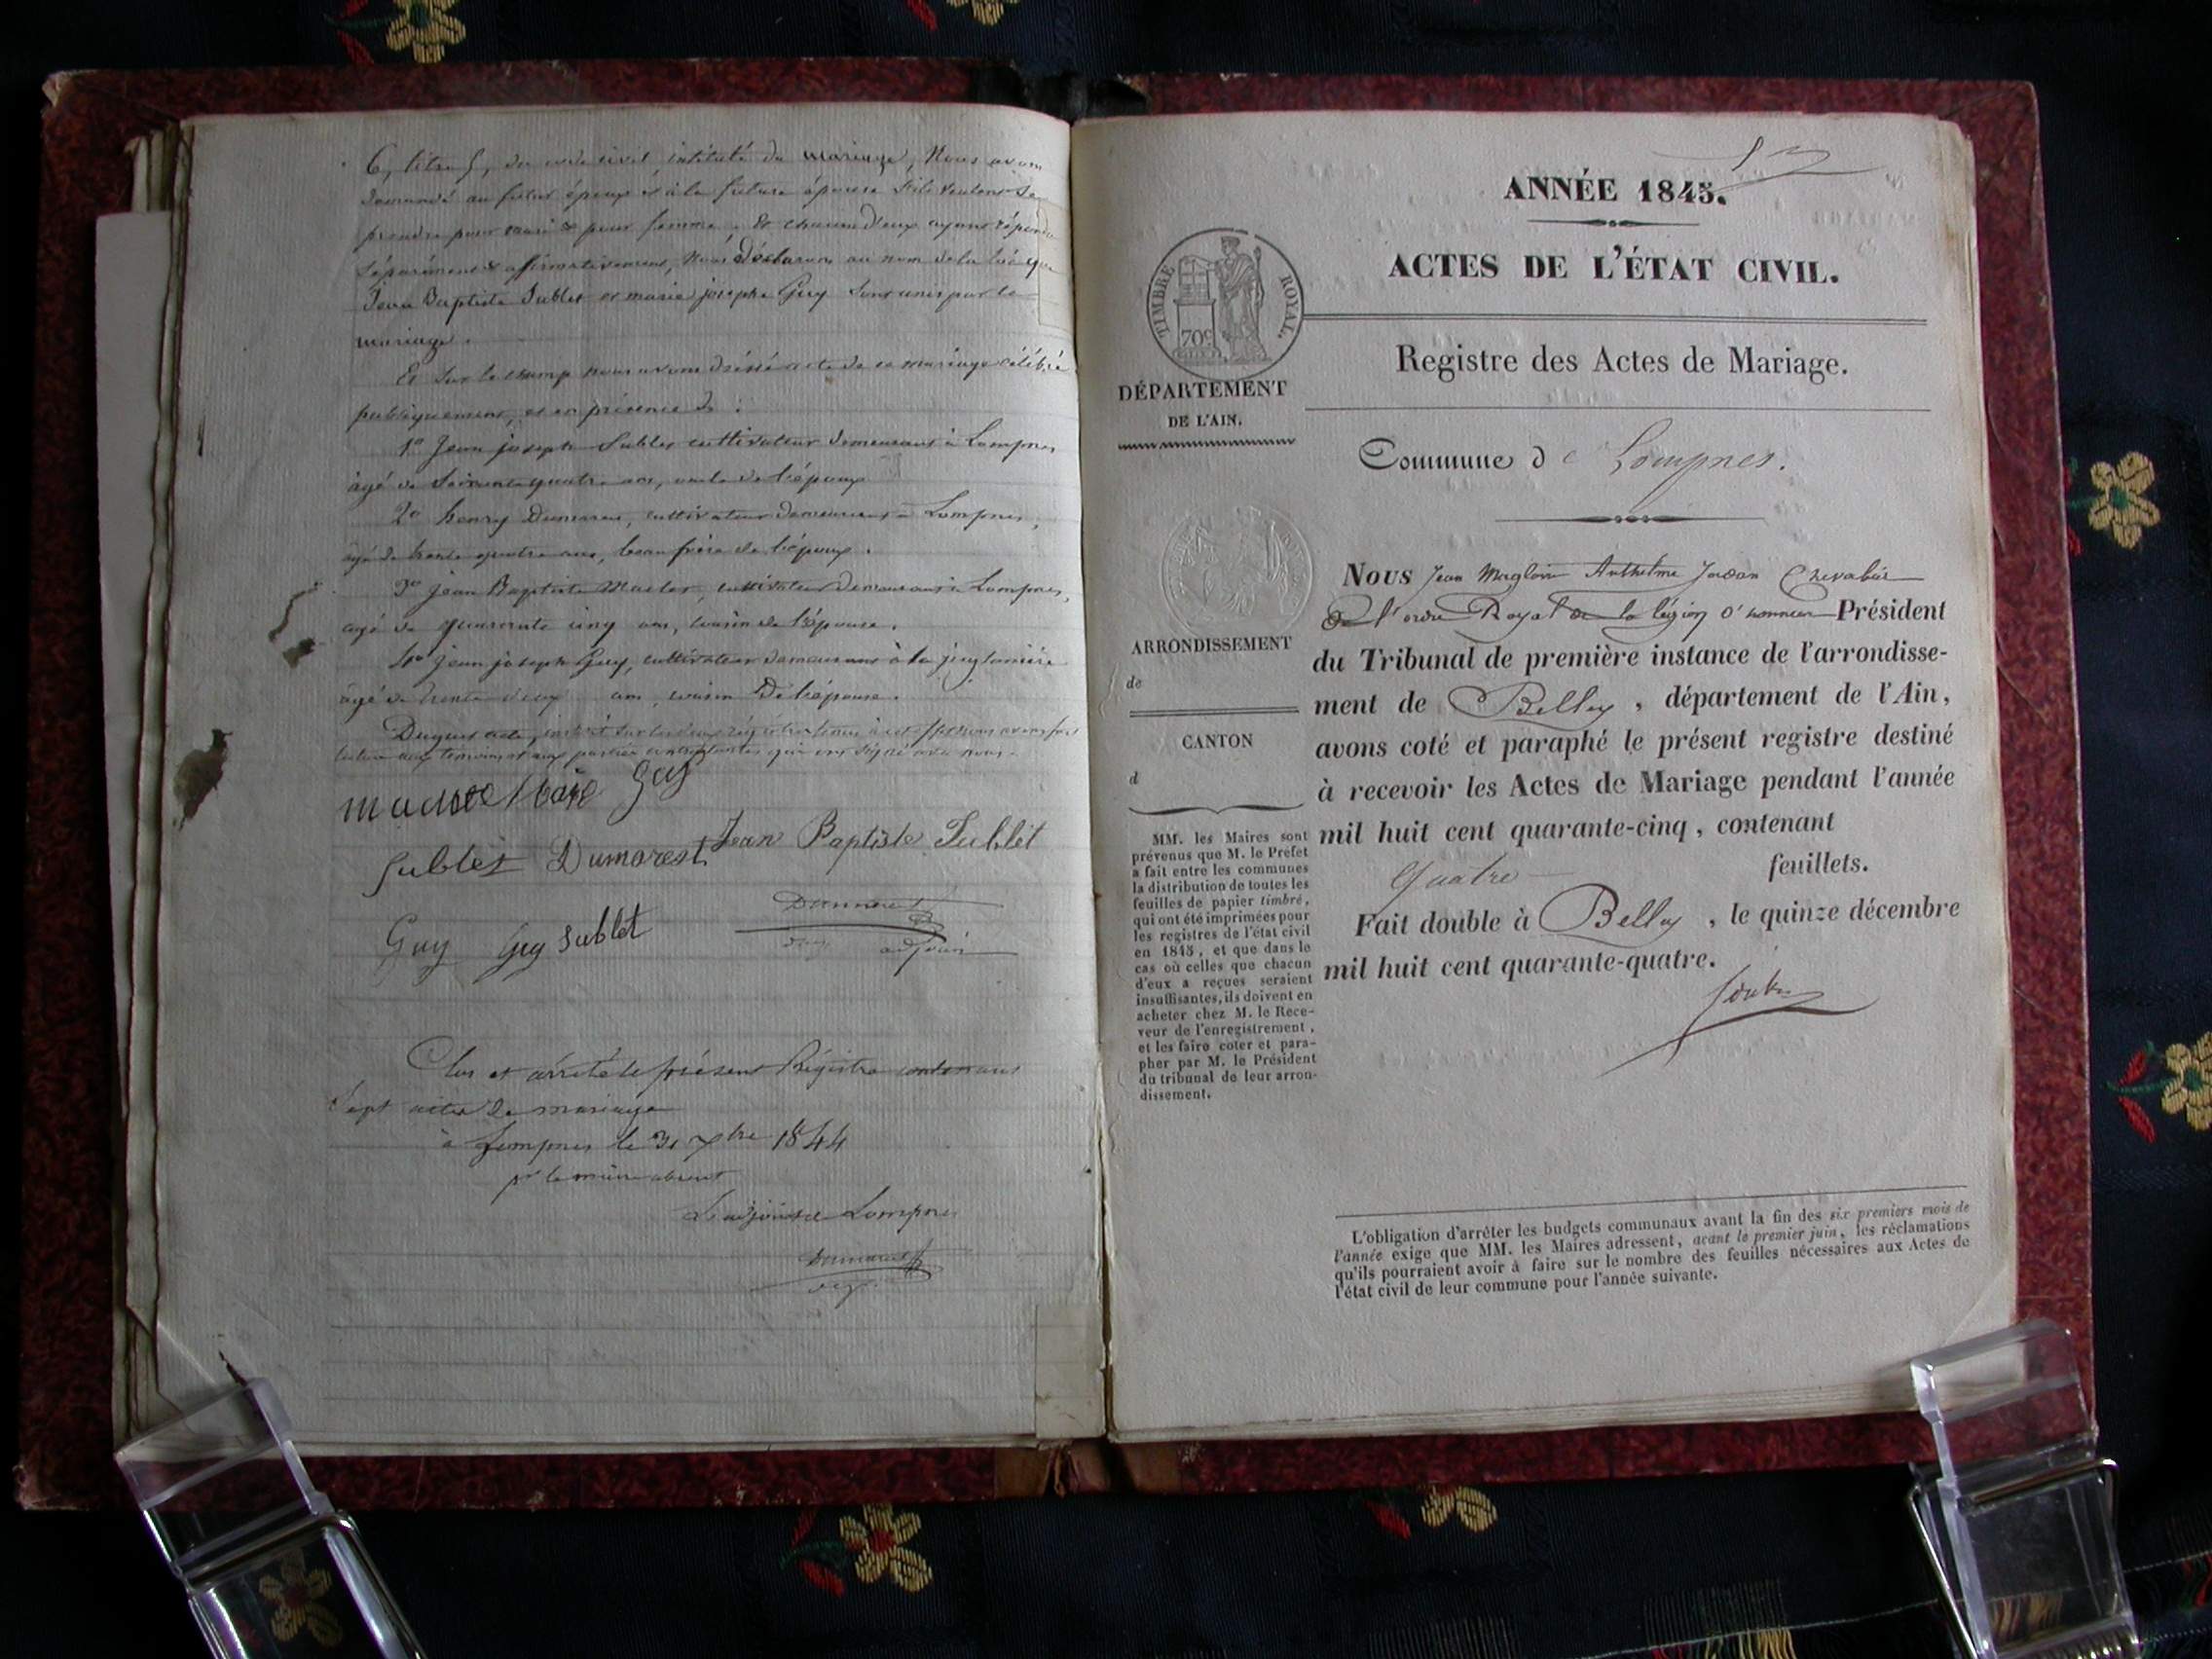 6, titre 5, du code civil, intitulé du mariage, Nous avons
demandé au futur époux et à la future épouse s'ils veulent se
prendre pour mari & pour femme. Et chacun d'eux ayant répondu
séparément & affirmativement, Nous Déclarons au nom de la loi que
Jean Baptiste Sublet et marie josephe Guy sont unis par le
mariage.
Et sur le champ nous avons dressé acte de ce mariage célébré
publiquement, et en présence de :
1º Jean joseph Sublet cultivateur demeurant à Lompnes
âgé de soixante quatre ans, oncle de l'époux
2º henry Dumarest, cultivateur demeurant à Lompnes,
âgé de trente quatre ans, beau frère de l'époux.
3º jean Baptiste Maclet, cultivateur demeurant à Lompnes,
agé de quarante cinq ans, cousin de l'épouse.
4º jean joseph Guy, cultivateur demeurant à la
âgé de trente deux ans, cousin De l'épouse.
Duquel acte, inscrit sur les deux régistres tenus à cet effet nous avons fait
lecture aux temoins et aux parties contractantes qui ont signé avec nous.
Guy
Sublet Dumarest Jean Baptiste Sublet
Dumarest
Guy Guy Sublet
adjoint
Clos et arrêté le présent Régistre contenant
Sept actes de mariage
à Lompnes le 31 xbre 1844
pr le maire absent
L'adjoint de Lompnes
Dumarest
ANNÉE 1845.
ACTES DE L'ÉTAT CIVIL.
TIMBRE ROYAL.
70c
Registre des Actes de Mariage.
DÉPARTEMENT
DE L'AIN.
Commune de Lompnes.
ARRONDISSEMENT
de
CANTON
d
MM. les Maires sont
prévenus que M. le Préfet
a fait entre les communes
la distribution de toutes les
feuilles de papier timbré,
qui ont été imprimées pour
les registres de l'état civil
en 1845, et que dans le
cas où celles que chacun
d'eux a reçues seraient
insuffisantes, ils doivent en
acheter chez M. le Rece-
veur de l'enregistrement,
et les faire coter et para-
pher par M. le Président
du tribunal de leur arron-
dissement.
Nous Jean Magloire Anthelme Jordan Chevalier
De l'ordre Royal de la légion d'honneur Président
du Tribunal de première instance de l'arrondisse-
ment de Belley, département de l'Ain,
avons coté et paraphé le présent registre destiné
à recevoir les Actes de Mariage pendant l'année
mil huit cent quarante-cinq, contenant
Quatre feuillets.
Fait double à Belley, le quinze décembre
mil huit cent quarante-quatre.
L'obligation d'arrêter les budgets communaux avant la fin des six premiers mois de
l'année exige que MM. les Maires adressent, avant le premier juin, les réclamations
qu'ils pourraient avoir à faire sur le nombre des feuilles nécessaires aux Actes de
l'état civil de leur commune pour l'année suivante.